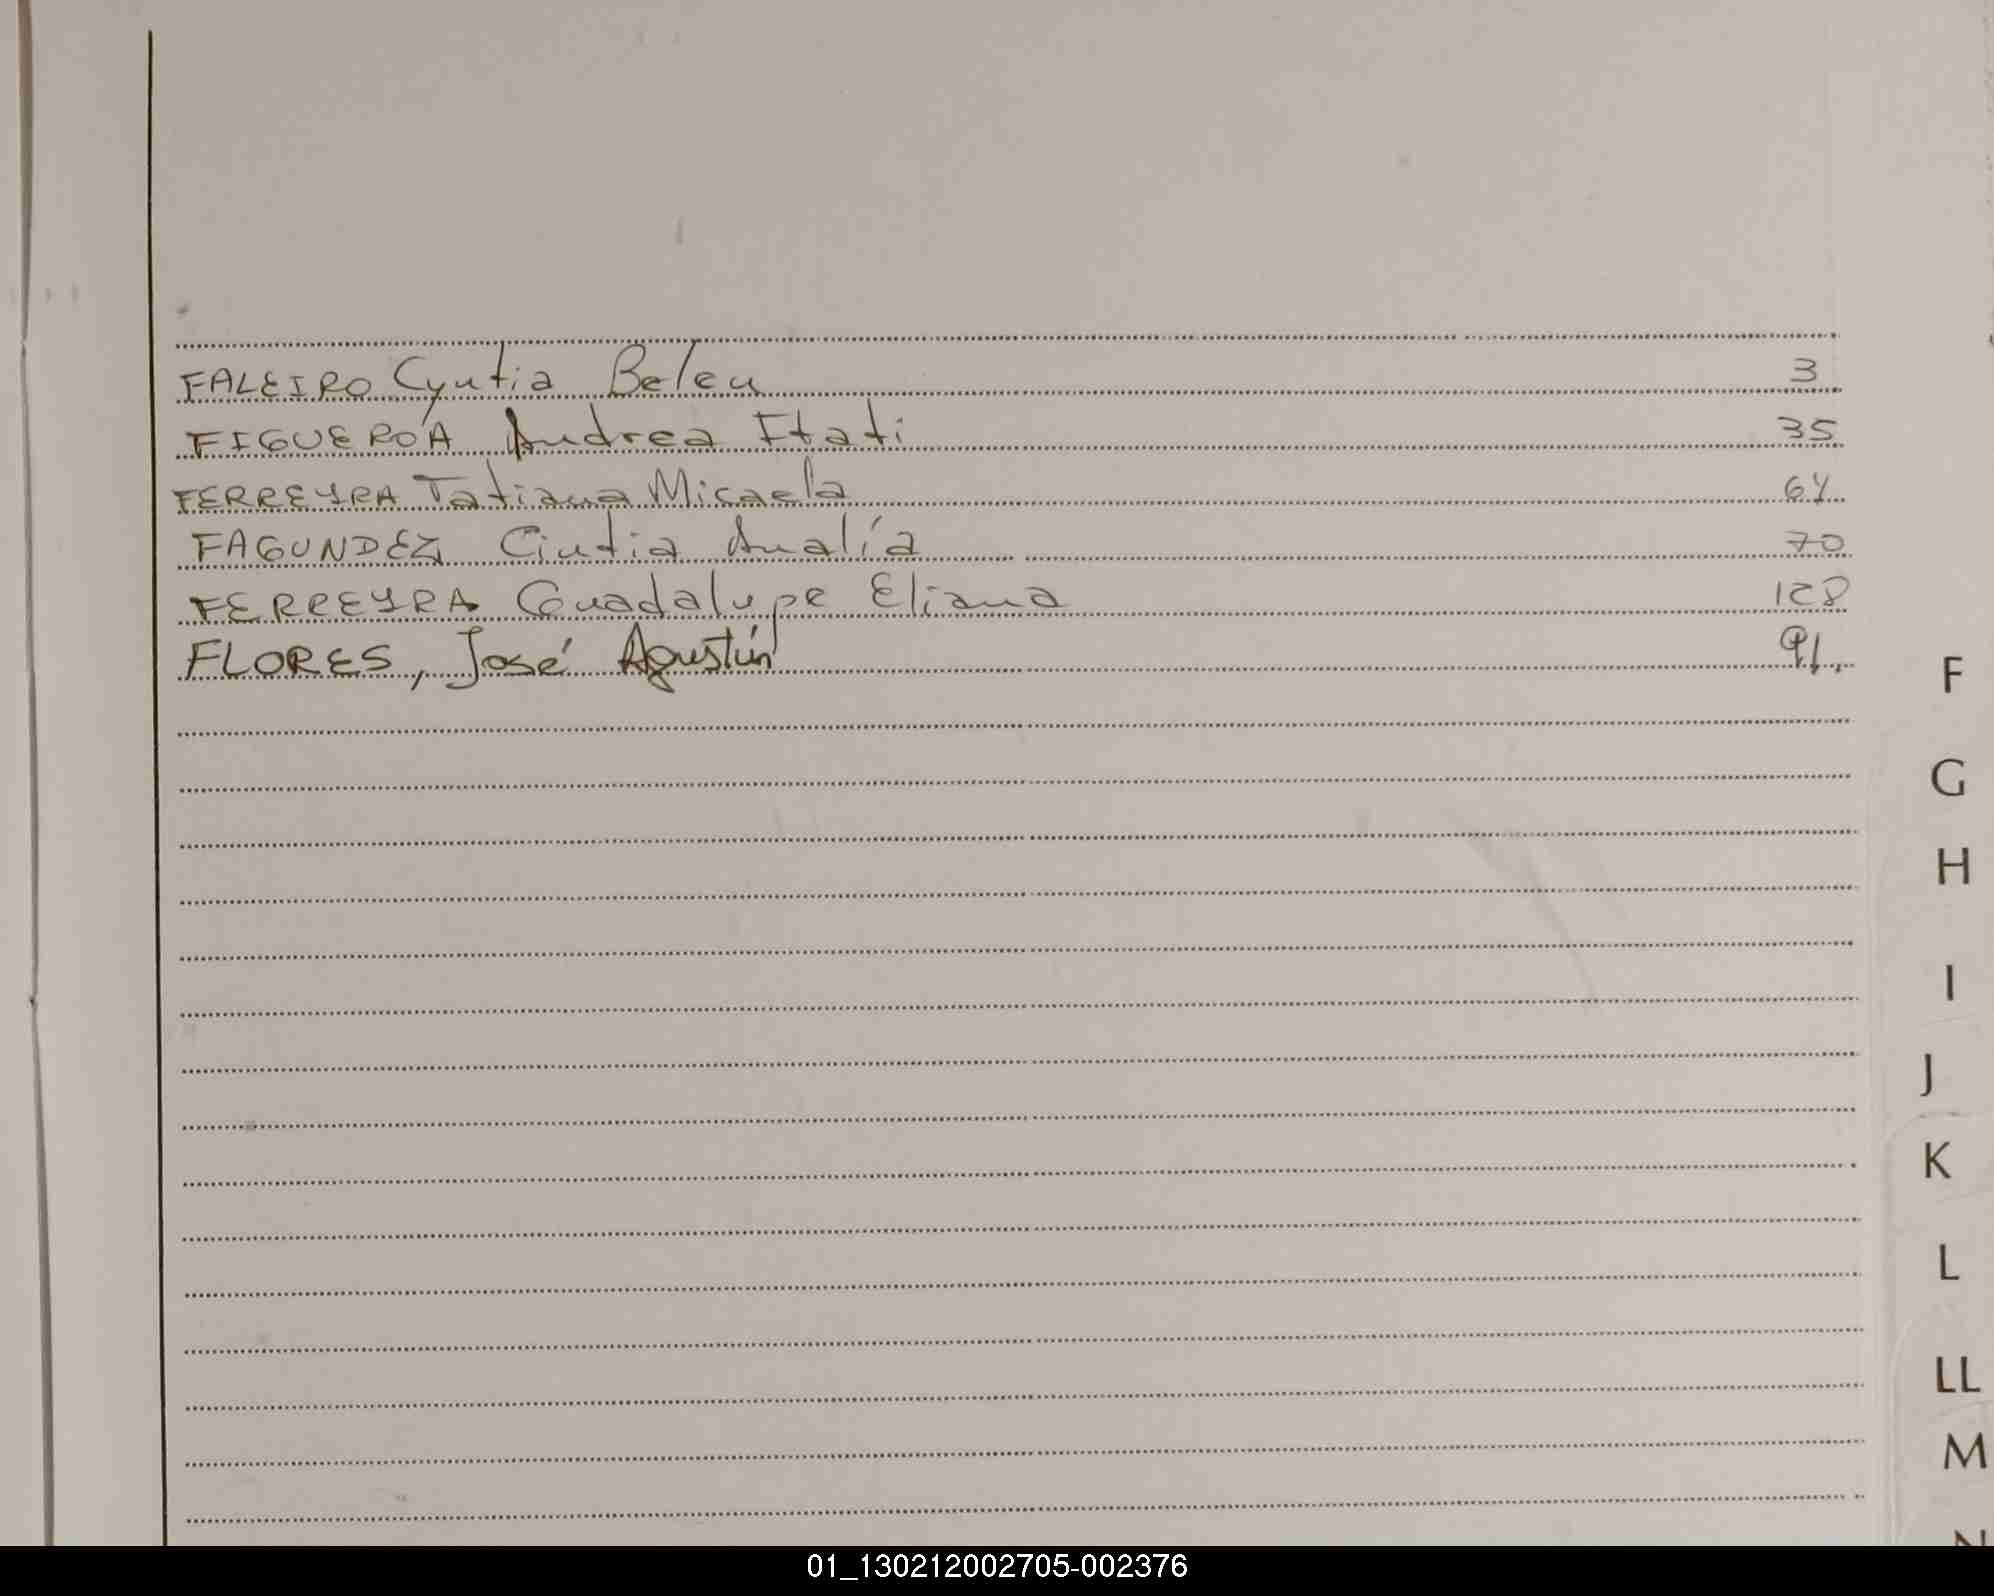 FALEIRO Cyntia Belen 3
FIGUEROA Andrea Itati 35
FERREYRA Tatiana Micaela 64
FAGUNDEZ Cintia Analía 70
FERREYRA Guadalupe Eliana 128
FLORES, José Agustín 91.
F
G
H
I
J
K
L
LL
M
N
01_130212002705-002376